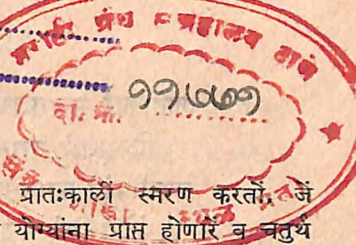 मराठी ग्रंथ संग्रहालय ठाणे
दा. क्र. ११७७१
प्रातःकालीं स्मरण करतों. जें
योग्यांना प्राप्त होणारें व चतुर्थ